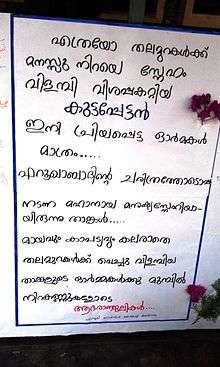 എത്രയോ തലമുറകൾക്ക്
മനസ്സു നിറയെ സ്നേഹം
വിളമ്പി വിശപ്പകറ്റിയ
കുട്ടപ്പേട്ടൻ
ഇനി പ്രിയപ്പെട്ട ഓർമകൾ
മാത്രം.....
ഫറൂഖാബാദിന്റെ ചരിത്രത്തോടൊപ്പം
നടന്ന മഹാനായ മനുഷ്യസ്നേഹിയാ-
യിരുന്നു താങ്കൾ....
മായവും കാപട്യവും കലരാതെ
തലമുറകൾക്ക് വെച്ചു വിളമ്പിയ
താങ്കളുടെ ഓർമ്മകൾക്കു മുമ്പിൽ
നിറകണ്ണുകളോടെ
ആദരാഞ്ജലികൾ....